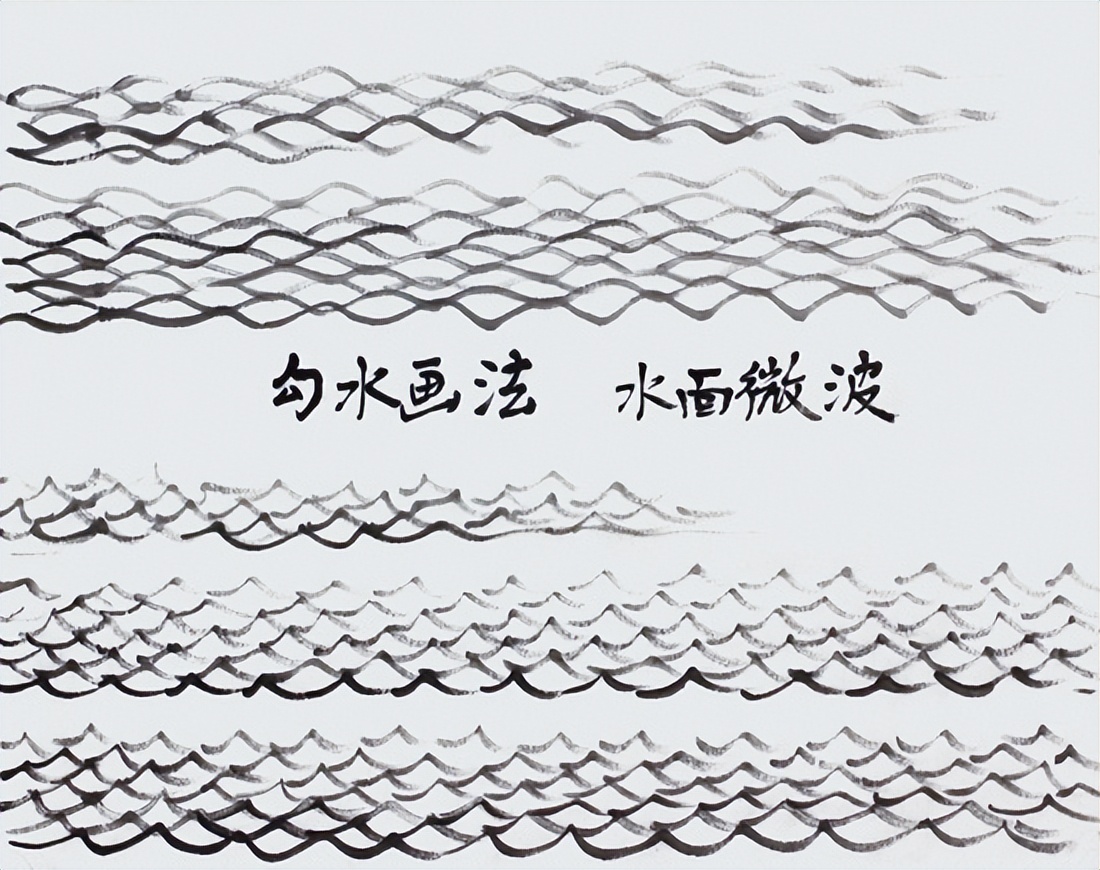 勾水画法 水面微波